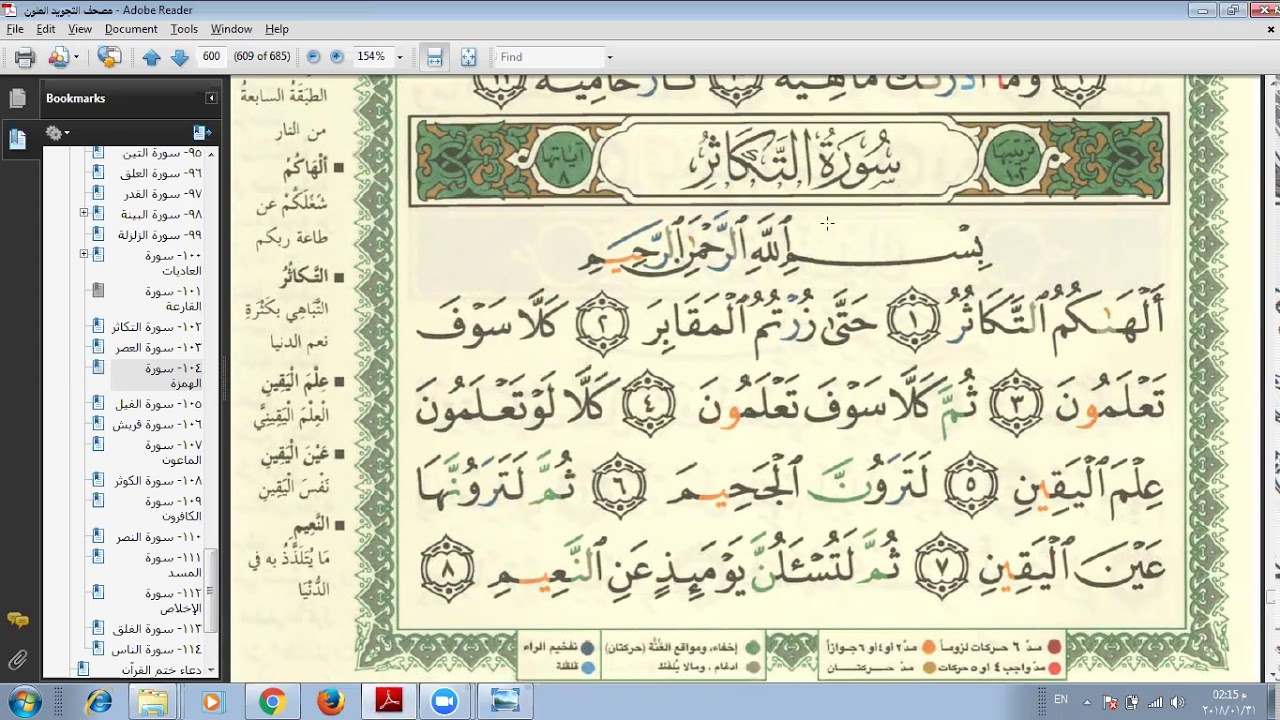 مصحف التجويد الملون - Adobe Reader
File Edit View Document Tools Window Help
600 (609 of 685) 154% Find
Bookmarks
٩٥- سورة التين
٩٦- سورة العلق
٩٧- سورة القدر
٩٨- سورة البينة
٩٩- سورة الزلزلة
١٠٠- سورة
العاديات
١٠١- سورة
القارعة
١٠٢- سورة التكاثر
١٠٣- سورة العصر
١٠٤- سورة
الهمزة
١٠٥- سورة الفيل
١٠٦- سورة قريش
١٠٧- سورة
الماعون
١٠٨- سورة الكوثر
١٠٩- سورة
الكافرون
١١٠- سورة النصر
١١١- سورة
المسد
١١٢- سورة
الإخلاص
١١٣- سورة الفلق
١١٤- سورة الناس
دعاء ختم القرآن
١٠ وَمَا أَدْرَىٰكَ مَاهِيَهْ ١٠ نَارٌ حَامِيَةٌ ١١
ترتيبها ١٠٢ سُورَةُ التَّكَاثُرِ آياتها ٨
بِسْمِ ٱللَّهِ ٱلرَّحْمَٰنِ ٱلرَّحِيمِ
أَلْهَىٰكُمُ ٱلتَّكَاثُرُ ١ حَتَّىٰ زُرْتُمُ ٱلْمَقَابِرَ ٢ كَلَّا سَوْفَ
تَعْلَمُونَ ٣ ثُمَّ كَلَّا سَوْفَ تَعْلَمُونَ ٤ كَلَّا لَوْ تَعْلَمُونَ
عِلْمَ ٱلْيَقِينِ ٥ لَتَرَوُنَّ ٱلْجَحِيمَ ٦ ثُمَّ لَتَرَوُنَّهَا
عَيْنَ ٱلْيَقِينِ ٧ ثُمَّ لَتُسْـَٔلُنَّ يَوْمَئِذٍ عَنِ ٱلنَّعِيمِ ٨
الطَبَقَة السابعةُ
من النار
أَلْهَاكُمْ
شَغَلَكُمْ عن
طاعة ربكم
التَّكاثُرُ
التَّبَاهِي بكَثْرَةِ
نعم الدنيا
عِلْمَ الْيَقِينِ
الْعِلْمَ الْيَقِينِيَّ
عَيْنَ الْيَقِينِ
نَفْسَ الْيَقِينِ
النَّعِيمِ
مَا يُتَلَذَّذُ به في
الدُّنْيَا
مدّ ٦ حركات لزوماً مدّ ٢ او ٤ او ٦ جوازاً إخفاء، ومواقع الغُنَّة (حركتان) تفخيم الراء
مدّ واجب ٤ او ٥ حركات مدّ حركتان ادغام ، ومالا يُلفَظ قلقلة
EN 02:15 م
٢٠١٨/٠١/٣١